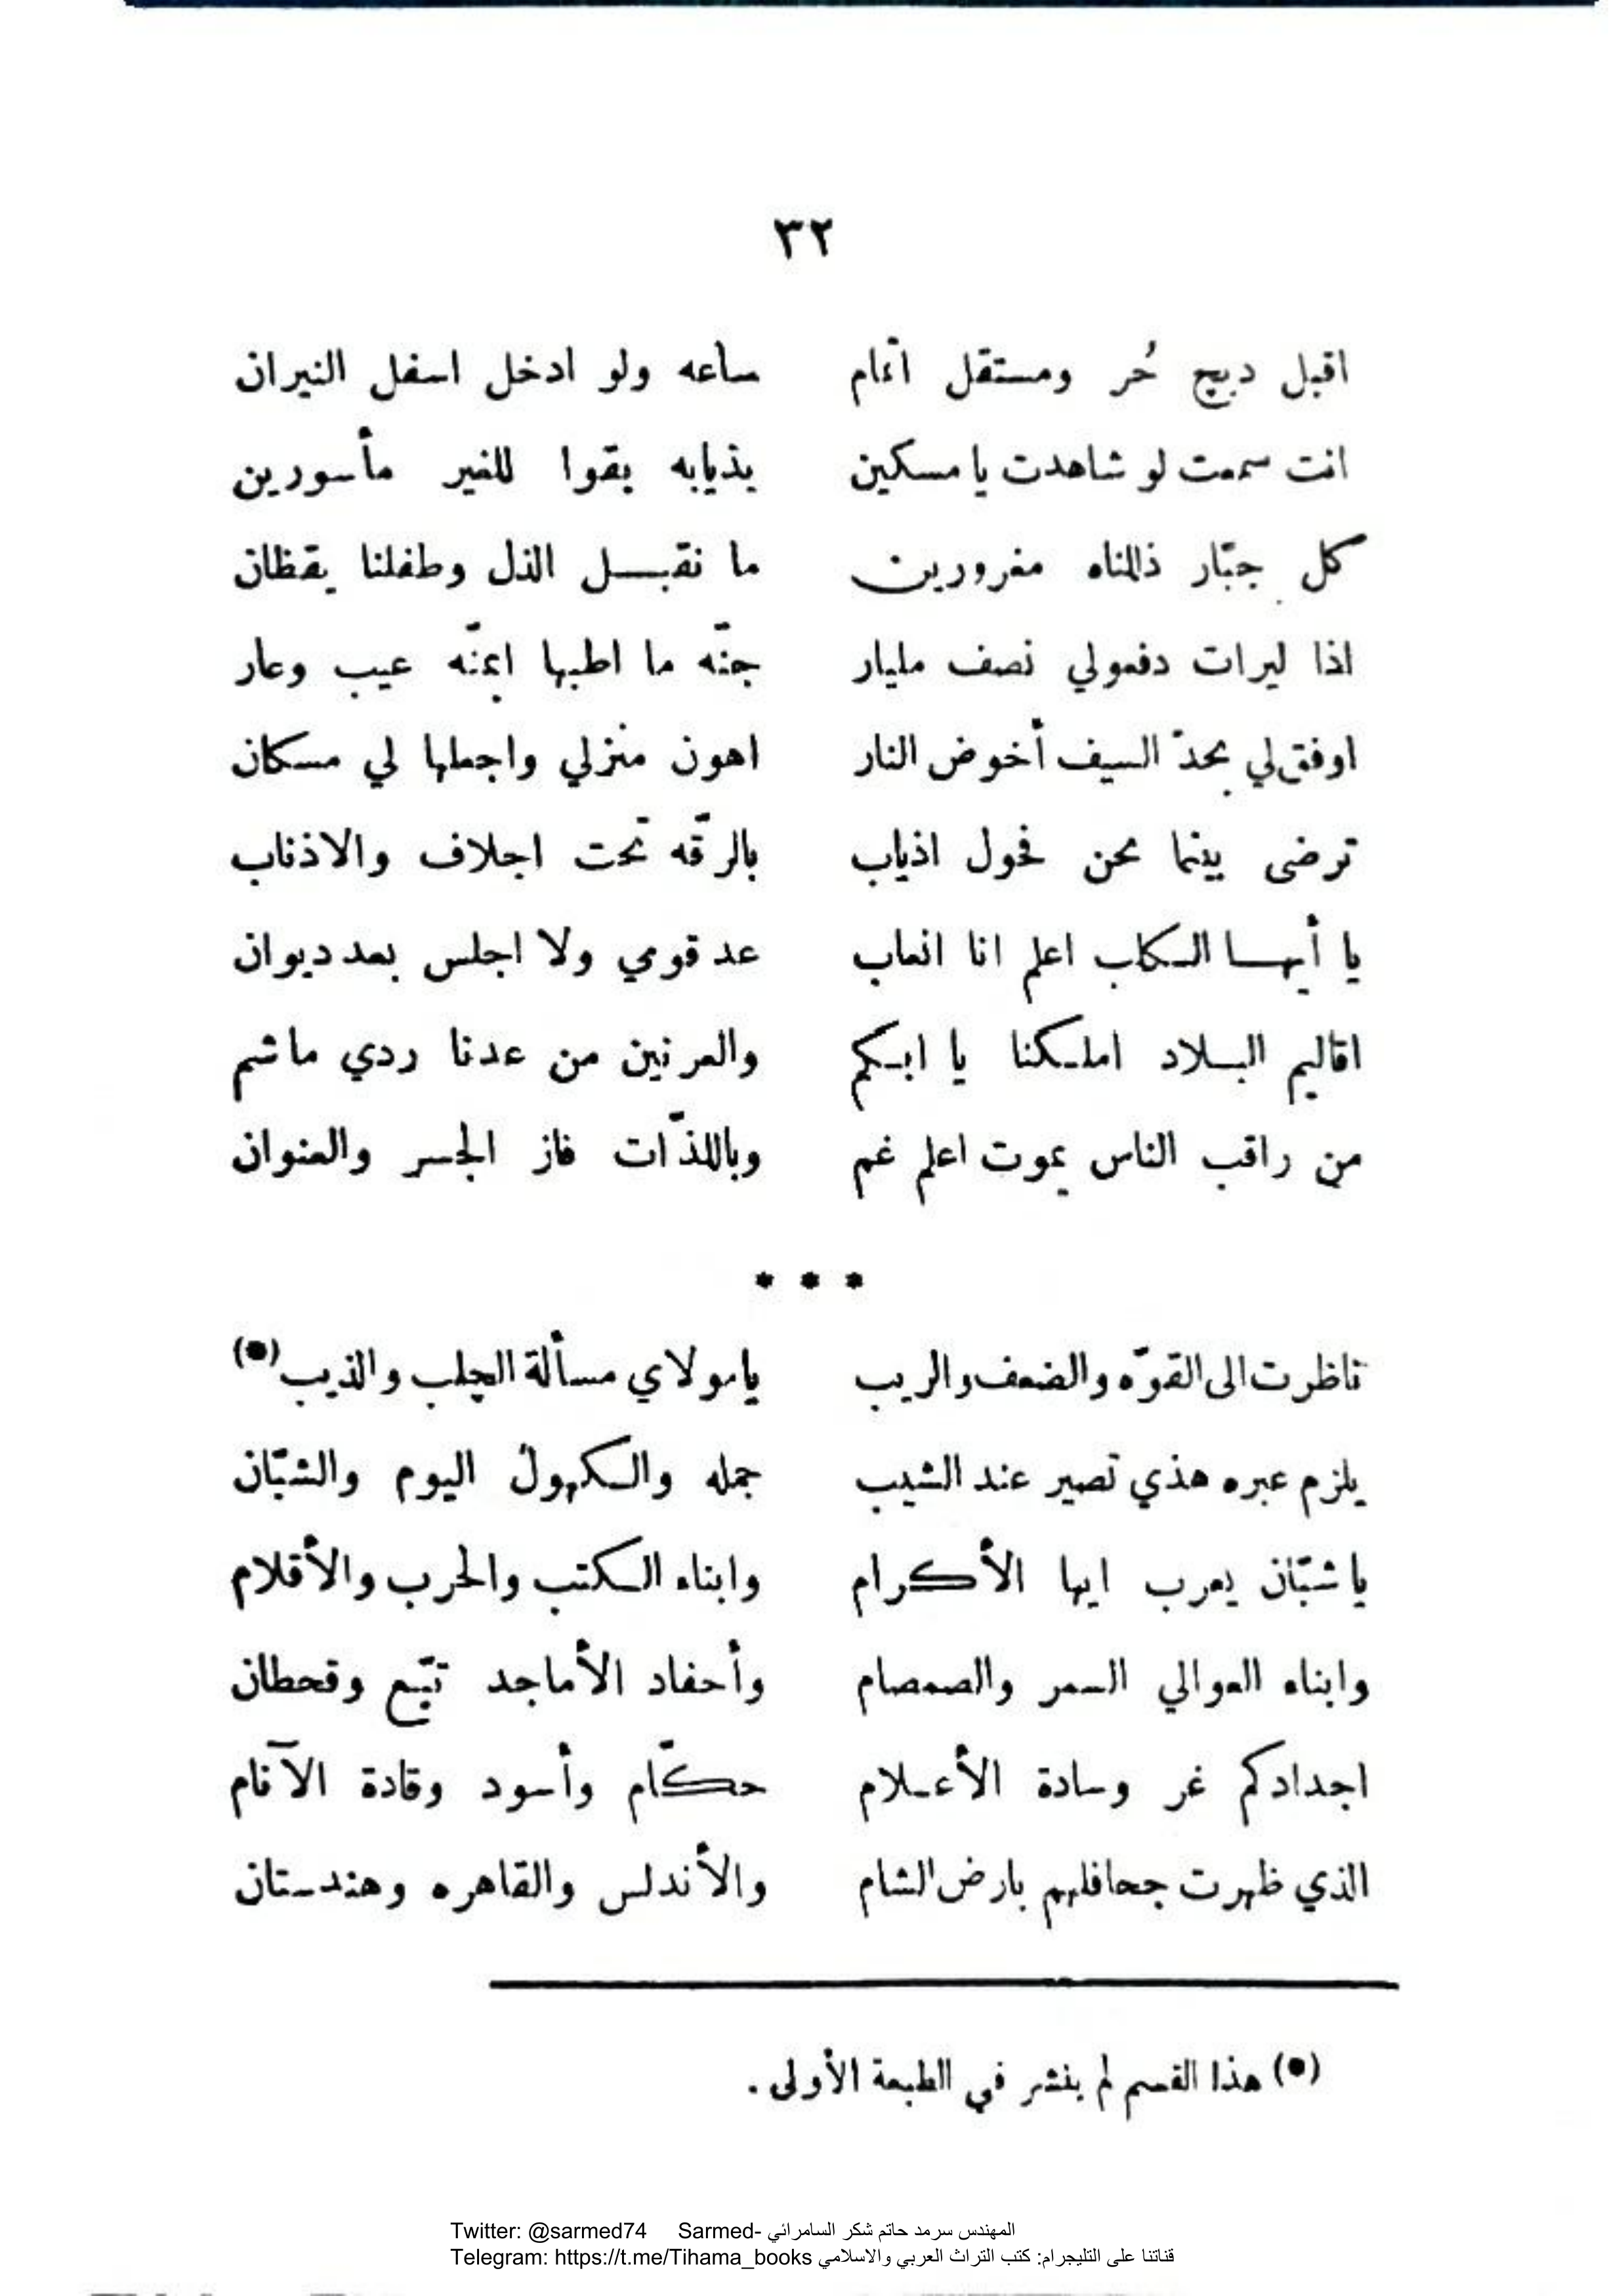 ٣٢
اقبل دبيچ حُر ومستقل اتمام ساعه ولو ادخل اسفل النيران
انت سمعت لو شاهدت يا مسكين بذيابه بقوا للغير مأسورين
كل جبّار ذللناه مغرورين ما نقبل الذل وطفلنا يقظان
اذا ليرات دفعولي نصف مليار جنّه ما اطبها ابمنّه عيب وعار
اوفق لي بحدّ السيف أخوض النار اهون منزلي واجعلها لي مسكان
ترضى بينما نحن فحول اذياب بالرقّه تحت اجلاف والاذناب
يا أيها الكلب اعلم انا انعاب عد قومي ولا اجلس بعد ديوان
اقاليم البلاد املكنا يا ابكم والعرنين من عدنا ردي ما شم
من راقب الناس يموت اعلم غم وباللذّات فاز الجسر والعنوان
* * *
ناظرت الى القوّه والضعف والريب يا مولاي مسألة الچلب والذيب (•)
يلزم عبره هذي تصير عند الشيب جمله والكهول اليوم والشبّان
يا شبّان يعرب ايها الأكرام وابناء الكتب والحرب والأقلام
وابناء العوالي السمر والصمصام وأحفاد الأماجد تبّع وقحطان
اجدادكم غر وسادة الأعلام حكّام وأسود وقادة الآنام
الذي ظهرت جحافلهم بارض الشام والأندلس والقاهره وهندستان
(•) هذا القسم لم ينشر في الطبعة الأولى .
Twitter: @sarmed74 Sarmed- المهندس سرمد حاتم شكر السامرائي
Telegram: https://t.me/Tihama_books قناتنا على التليجرام: كتب التراث العربي والاسلامي